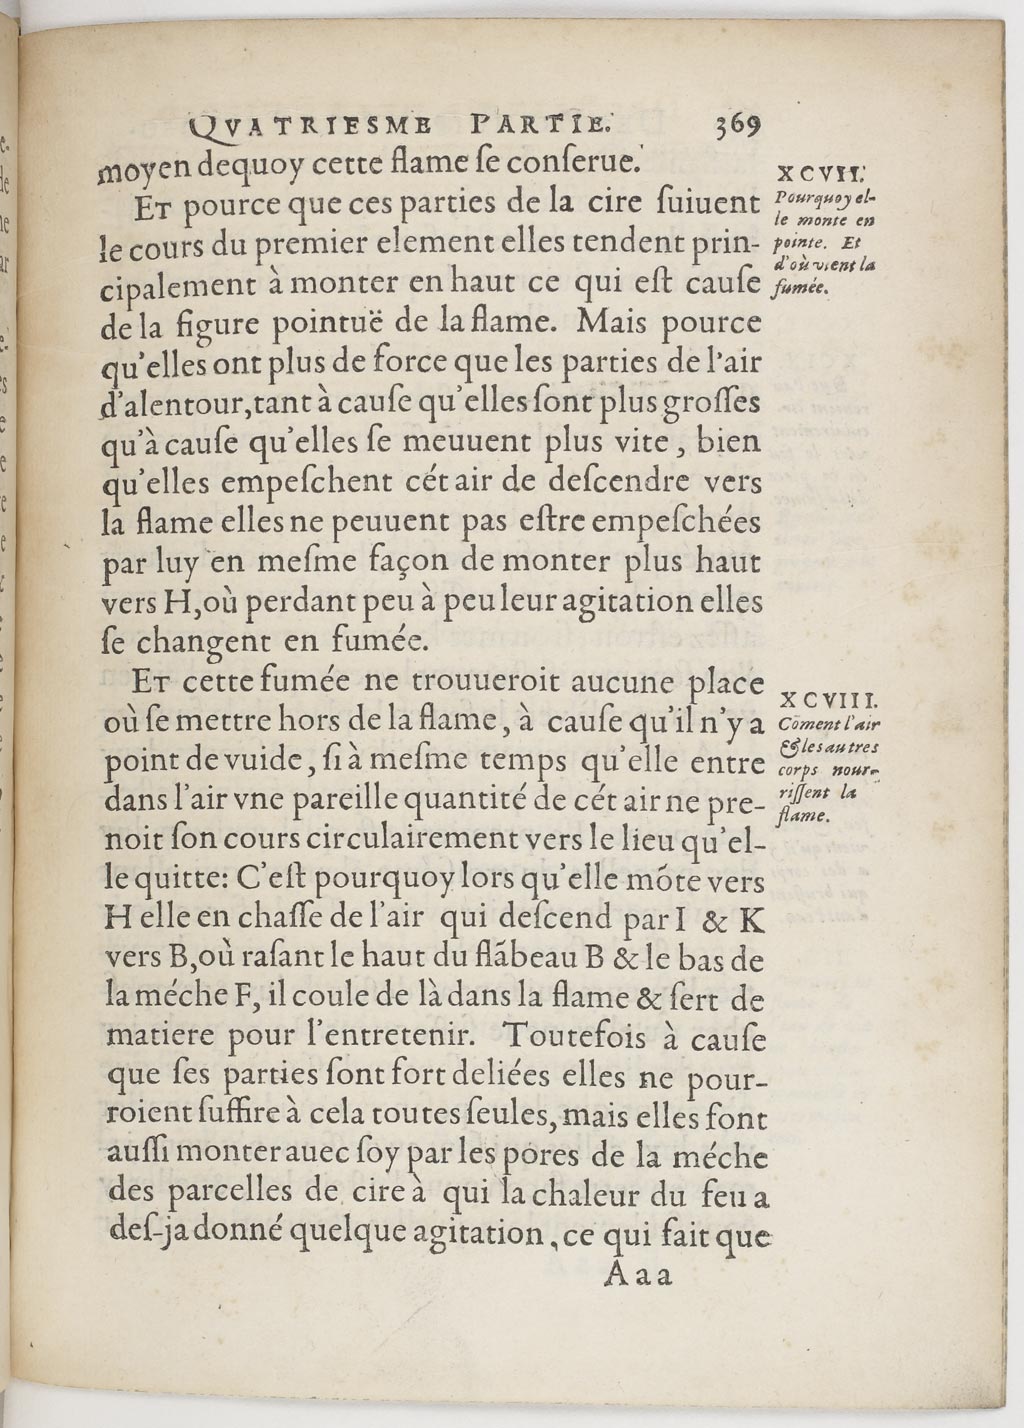 QVATRIESME PARTIE. 369
moyen dequoy cette flame ſe conſerue.
ET pource que ces parties de la cire ſuiuent
le cours du premier element elles tendent prin-
cipalement à monter en haut ce qui eſt cauſe
de la figure pointuë de la flame. Mais pource
qu'elles ont plus de force que les parties de l'air
d'alentour, tant à cauſe qu'elles ſont plus groſſes
qu'à cauſe qu'elles ſe meuuent plus vite, bien
qu'elles empeſchent cét air de deſcendre vers
la flame elles ne peuuent pas eſtre empeſchées
par luy en meſme façon de monter plus haut
vers H, où perdant peu à peu leur agitation elles
ſe changent en fumée.
XCVII.
Pourquoy el-
le monte en
pointe. Et
d'où vient la
fumée.
ET cette fumée ne trouueroit aucune place
où ſe mettre hors de la flame, à cauſe qu'il n'y a
point de vuide, ſi à meſme temps qu'elle entre
dans l'air vne pareille quantité de cét air ne pre-
noit ſon cours circulairement vers le lieu qu'el-
le quitte: C'eſt pourquoy lors qu'elle mõte vers
H elle en chaſſe de l'air qui deſcend par I & K
vers B, où raſant le haut du flãbeau B & le bas de
la méche F, il coule de là dans la flame & ſert de
matiere pour l'entretenir. Toutefois à cauſe
que ſes parties ſont fort deliées elles ne pour-
roient ſuffire à cela toutes ſeules, mais elles font
auſſi monter auec ſoy par les pores de la méche
des parcelles de cire à qui la chaleur du feu a
deſ-ja donné quelque agitation, ce qui fait que
XCVIII.
Cõment l'air
& les autres
corps nour-
riſſent la
flame.
Aaa